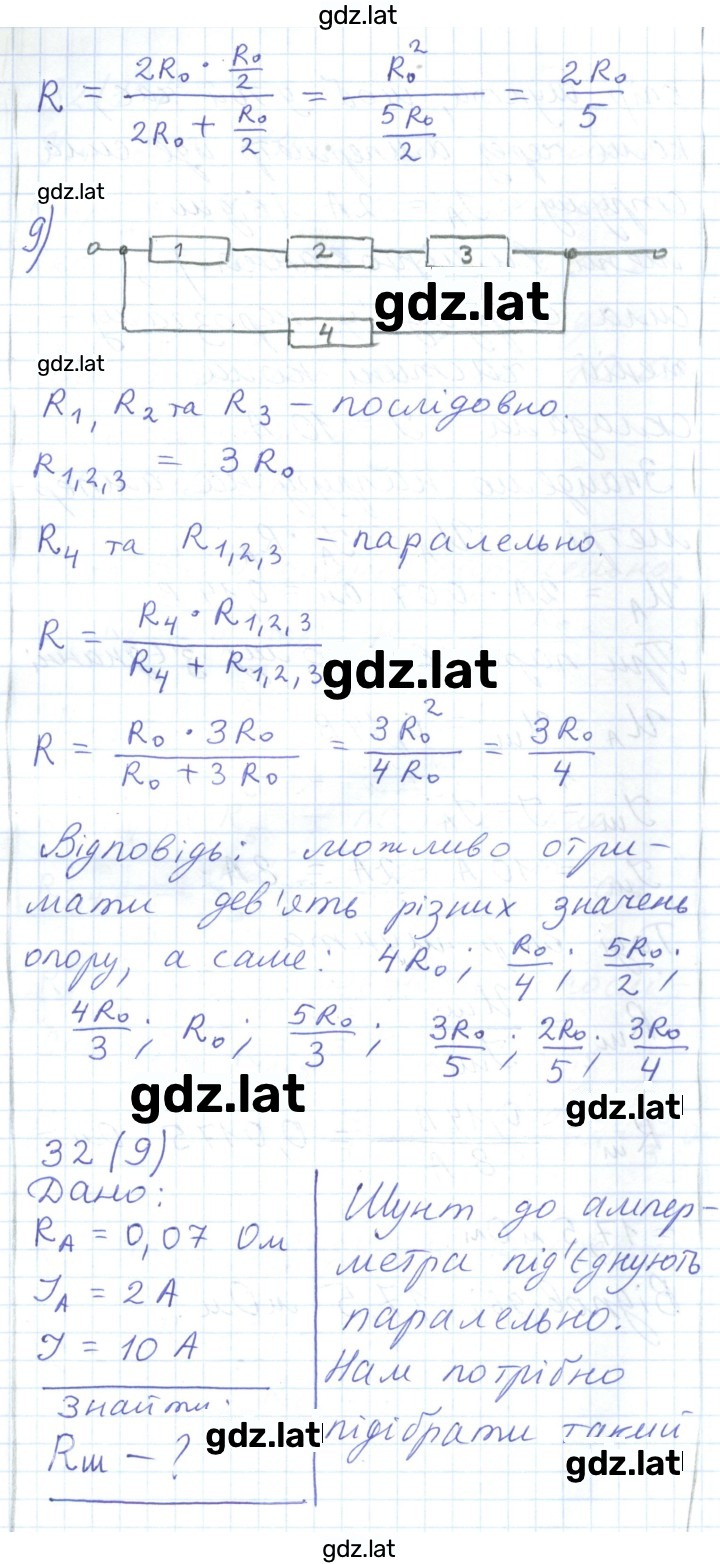 gdz.lat
R = (2R₀ · R₀/2) / (2R₀ + R₀/2) = R₀² / (5R₀/2) = 2R₀/5
gdz.lat
9)
1 2 3
gdz.lat
4
gdz.lat
R₁, R₂ та R₃ – послідовно.
R₁,₂,₃ = 3R₀
R₄ та R₁,₂,₃ – паралельно.
R = (R₄ · R₁,₂,₃) / (R₄ + R₁,₂,₃)
gdz.lat
R = (R₀ · 3R₀) / (R₀ + 3R₀) = 3R₀² / 4R₀ = 3R₀/4
Відповідь: можливо отри-
мати дев'ять різних значень
опору, а саме: 4R₀; R₀/4; 5R₀/2;
4R₀/3; R₀; 5R₀/3; 3R₀/5; 2R₀/5; 3R₀/4
gdz.lat
gdz.lat
32 (9)
Дано:
R_A = 0,07 Ом
I_A = 2 А
I = 10 А
Знайти:
Rш – ?
Шунт до ампер-
метра під'єднують
паралельно.
Нам потрібно
підібрати такий
gdz.lat
gdz.lat
gdz.lat